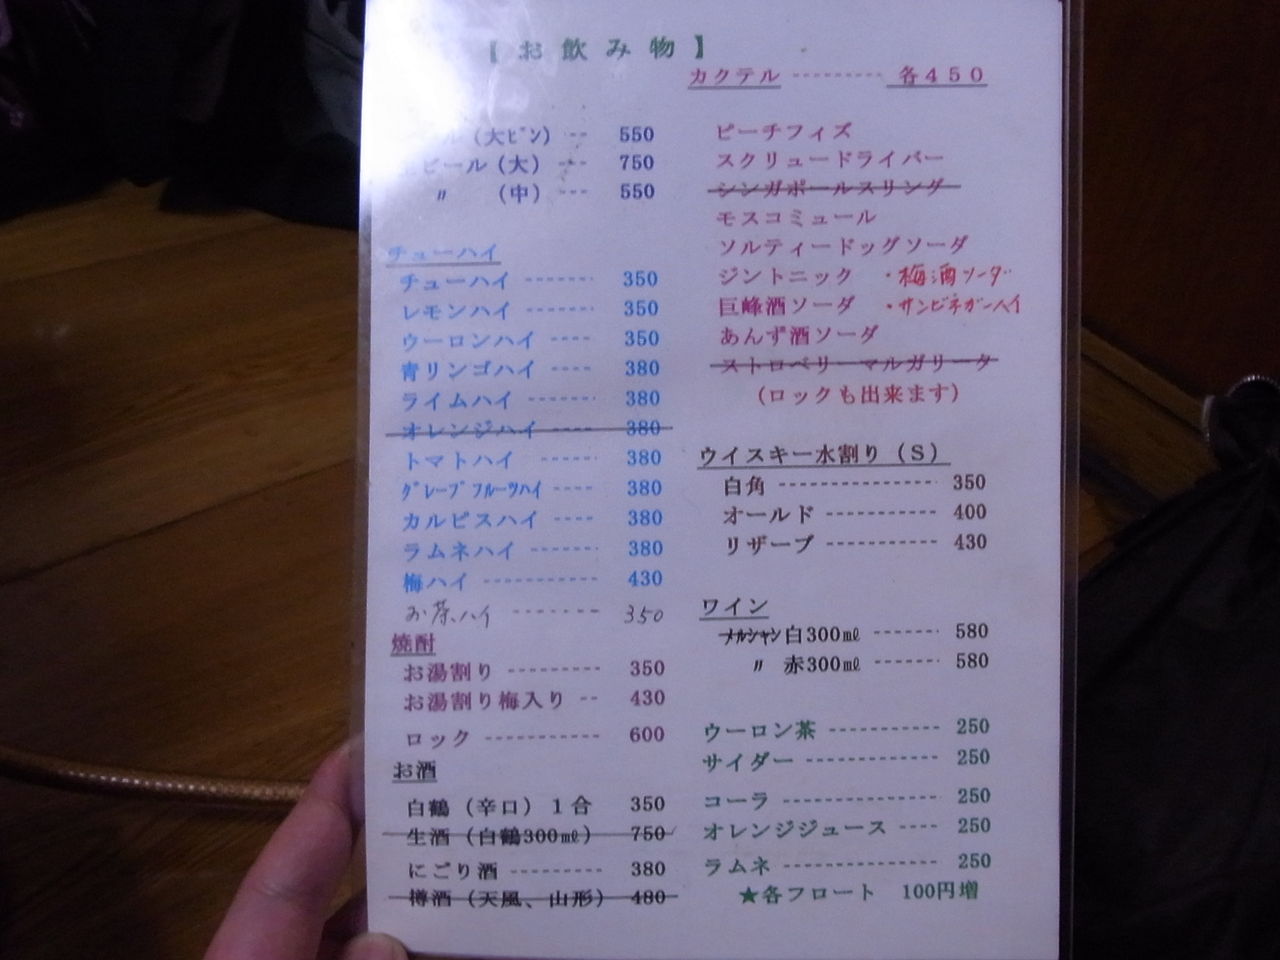 【お飲み物】
ル（大ビン） 550
生ビール（大） 750
〃 （中） 550
チューハイ
チューハイ 350
レモンハイ 350
ウーロンハイ 350
青リンゴハイ 380
ライムハイ 380
オレンジハイ 380
トマトハイ 380
グレープフルーツハイ 380
カルピスハイ 380
ラムネハイ 380
梅ハイ 430
お茶ハイ 350
焼酎
お湯割り 350
お湯割り梅入り 430
ロック 600
お酒
白鶴（辛口）１合 350
生酒（白鶴300㎖） 750
にごり酒 380
樽酒（天風、山形） 480
カクテル 各４５０
ピーチフィズ
スクリュードライバー
シンガポールスリング
モスコミュール
ソルティードッグソーダ
ジントニック ・梅酒ソーダ
巨峰酒ソーダ ・サンビネガーハイ
あんず酒ソーダ
ストロベリーマルガリータ
（ロックも出来ます）
ウイスキー水割り（Ｓ）
白角 350
オールド 400
リザーブ 430
ワイン
メルシャン白300㎖ 580
〃 赤300㎖ 580
ウーロン茶 250
サイダー 250
コーラ 250
オレンジジュース 250
ラムネ 250
★各フロート 100円増